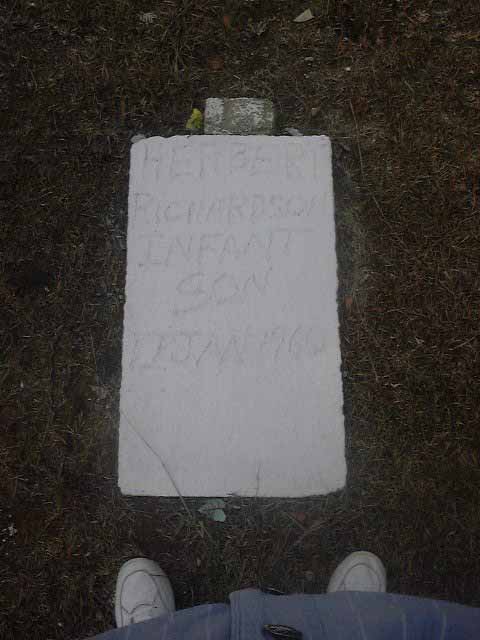 HERBERT
RICHARDSON
INFANT
SON
JAN